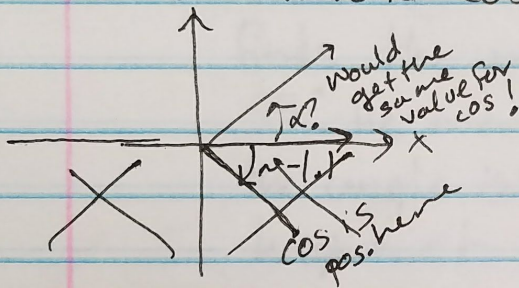 would
get the
same
value for
cos!
α?
x
cos is
pos. here